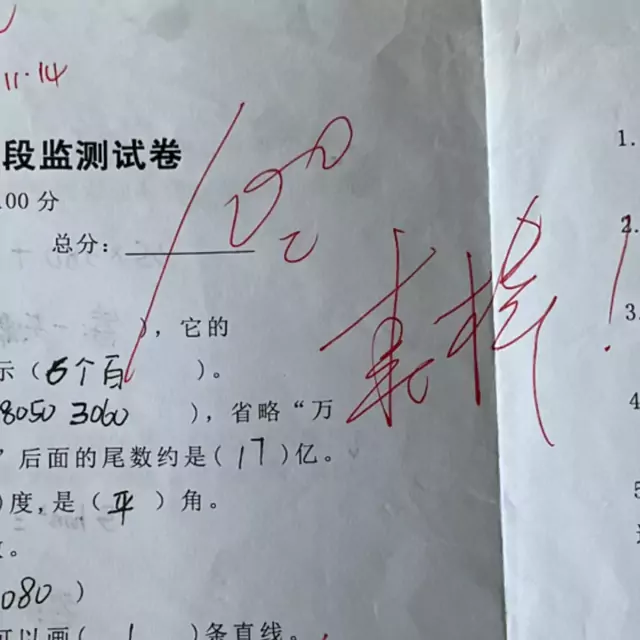 11.14
段监测试卷
.00分
总分:
100
真棒!
1.
2.
),它的
3.
示(6个百)。
8050 3060 ),省略“万
4
”后面的尾数约是(17)亿。
)度,是(平)角。
5
080)
可以画(1)条直线。